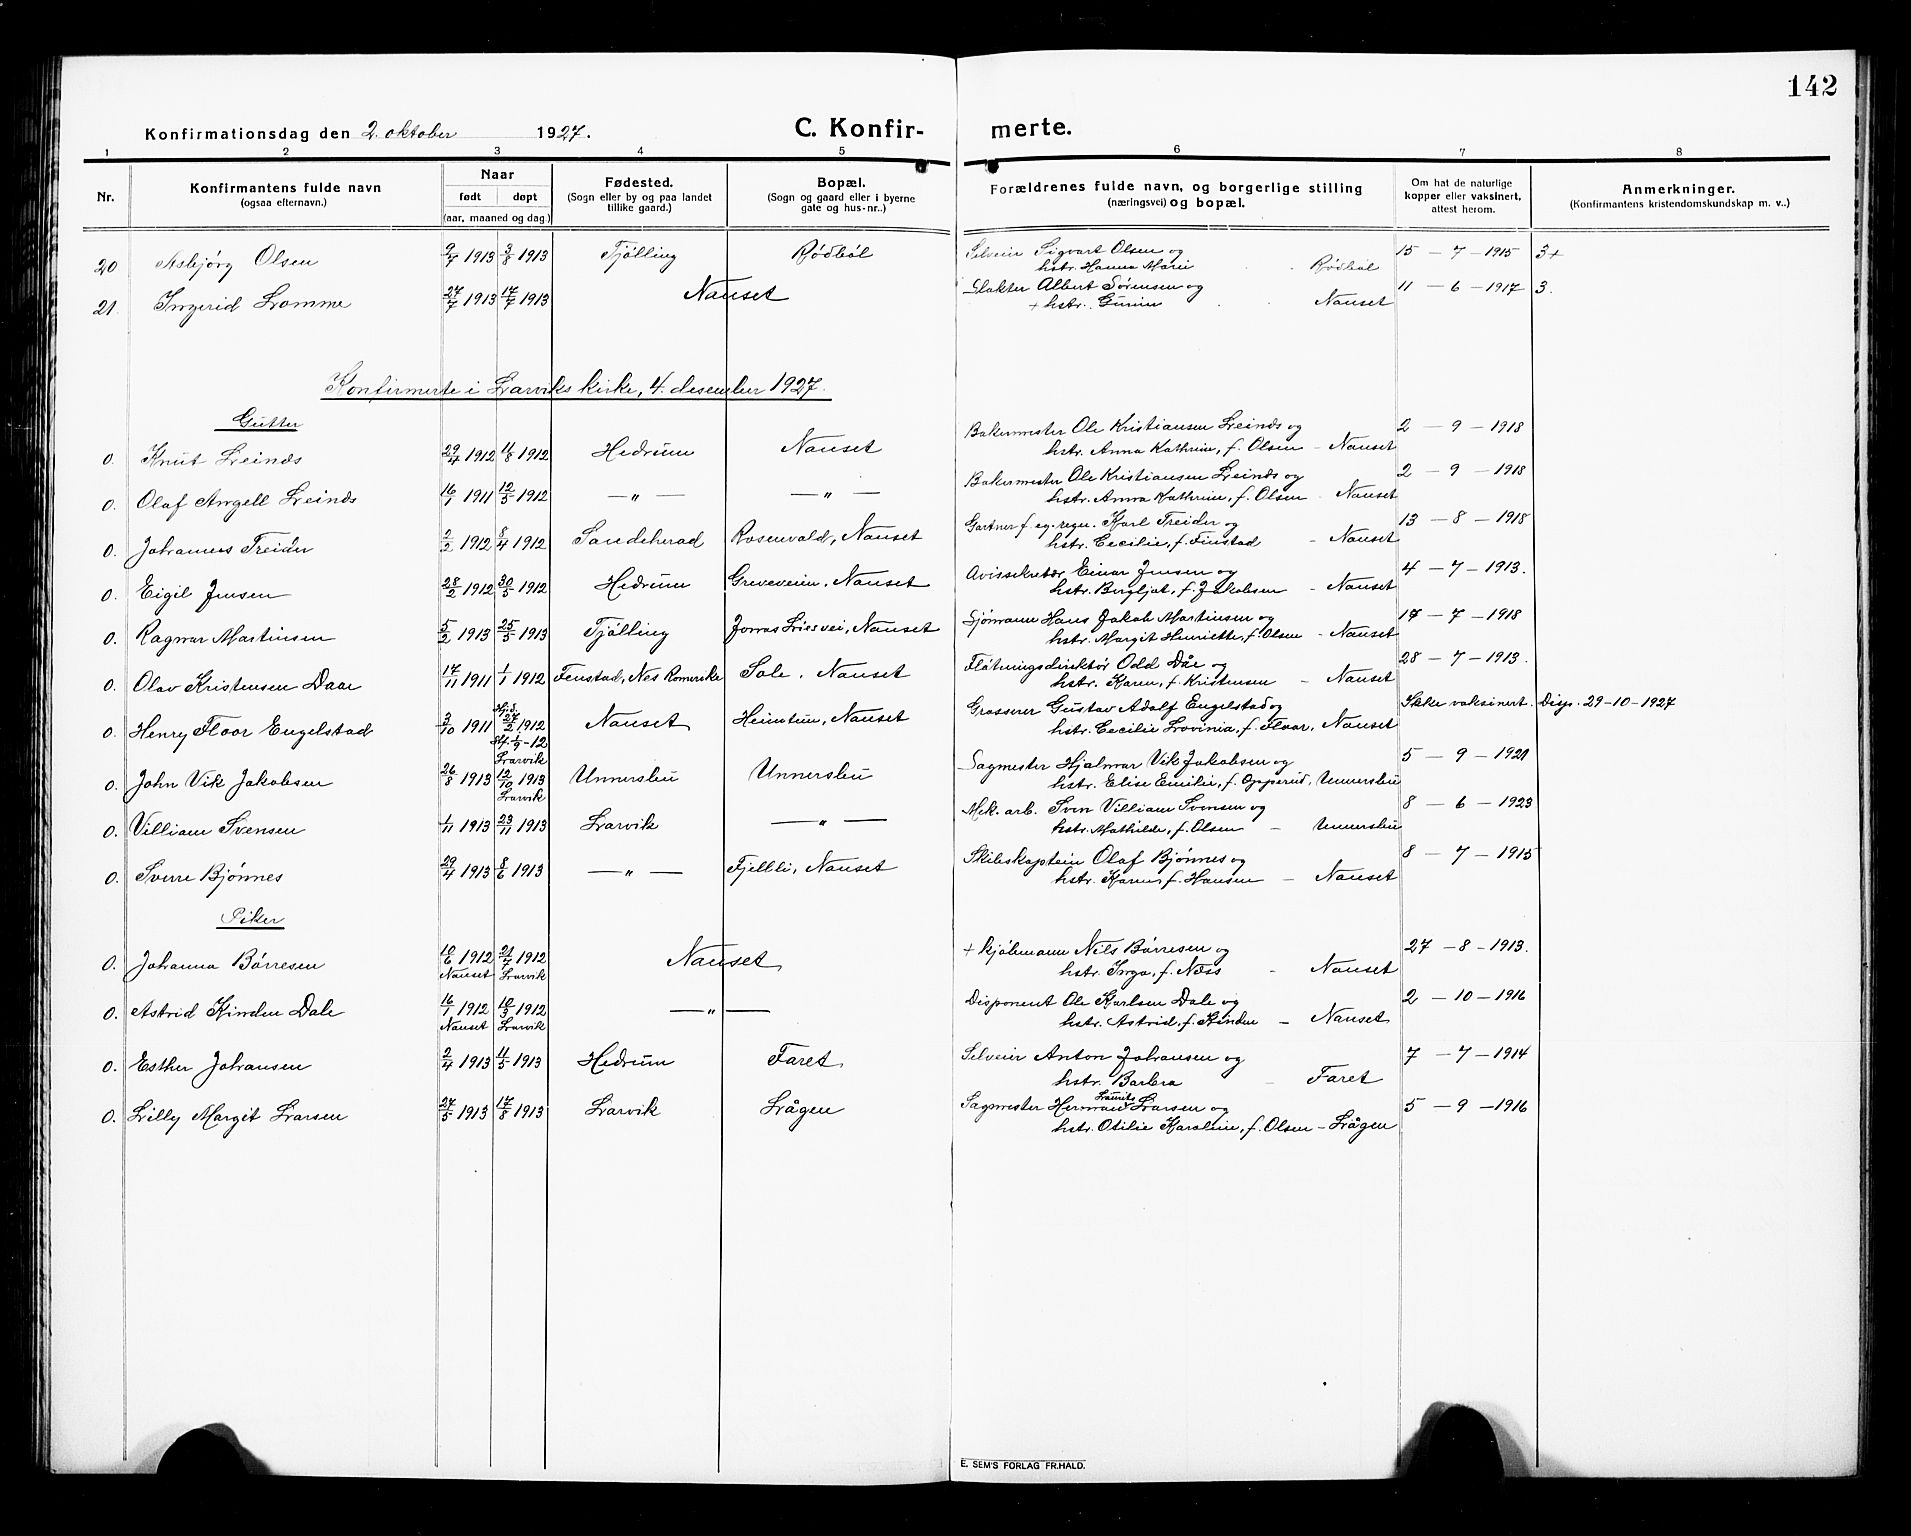 142
Konfirmationsdag den 2. oktober 1927.
C. Konfir- merte.
1 2 3 4 5 6 7 8
Nr. Konfirmantens fulde navn (ogsaa efternavn.) Naar født døpt (aar, maaned og dag.) Fødested. (Sogn eller by og paa landet tillike gaard.) Bopæl. (Sogn og gaard eller i byerne gate og hus-nr..) Forældrenes fulde navn, og borgerlige stilling (næringsvei) og bopæl. Om hat de naturlige kopper eller vaksinert, attest herom. Anmerkninger. (Konfirmantens kristendomskundskap m. v..)
20 Asbjörg Olsen 9/7 1913 3/8 1913 Tjölling Rödböl Selveier Sigvart Olsen og 15 - 7 - 1915 3+
hstr. Hanna Marie Rödböl
21. Ingerid Lomme 27/7 1913 17/7 1913 Nanset Slakter Albert Sörensen og 11 - 6 - 1917 3.
+ hstr. Gunine Nanset
Konfirmerte i Larviks kirke, 4. desember 1927.
Gutter
0. Knut Leinæs 29/4 1912 11/8 1912 Hedrum Nanset Bakermester Ole Kristiansen Leinæs og 2 - 9 - 1918
hstr. Anna Kathrine, f. Olsen - Nanset
0. Olaf Angell Leinæs 16/1 1911 12/5 1912 — " — — " — Bakermester Ole Kristiansen Leinæs og 2 - 9 - 1918
hstr. Anna Kathrine, f. Olsen - Nanset
0. Johannes Treider 2/2 1912 8/4 1912 Sandeherad Rosenvald, Nanset Gartner f. eg. regn. Karl Treider og 13 - 8 - 1918
hstr. Cecilie, f. Finstad - Nanset
0. Eigil Jensen 28/2 1912 30/5 1912 Hedrum Greveveien, Nanset Avissekretær Einar Jensen og 4 - 7 - 1913.
hstr. Bergljot, f. Jakobsen - Nanset
0. Ragnar Martinsen 5/2 1913 25/5 1913 Tjölling Jonas Liesvei, Nanset Sjömann Hans Jakob Martinsen og 17 - 7 - 1918
hstr. Margit Henriette, f. Olsen - Nanset
0. Olav Kristensen Daae 17/11 1911 1/1 1912 Fenstad, Nes Romerike Sole, Nanset Flötningsdirektör Odd Dåe og 28 - 7 - 1913.
hstr. Karen, f. Kristensen - Nanset
0. Henry Floor Engelstad 3/10 1911 Hjd. 27/2 1912 Nanset Heimtun, Nanset Grosserer Gustav Adolf Engelstad og Ikke vaksinert. Disp. 29-10-1927
Stf. 1/9-12 Larvik hstr. Cecilie Lovinia, f. Floor, Nanset
0. John Vik Jakobsen 26/8 1913 12/10 1913 Unnersbu Unnersbu Sagmester Hjalmar Vik Jakobsen og 5 - 9 - 1921
Larvik hstr. Elise Emilie, f. Opperud, Unnersbu
0. Villiam Svensen 1/11 1913 23/11 1913 Larvik — " — Mek. arb. Sven Villiam Svensen og 8 - 6 - 1923
hstr. Mathilde, f. Olsen - Unnersbu
0. Sverre Bjönnes 29/4 1913 8/6 1913 — " — Fjelli, Nanset Skibskaptein Olaf Bjönnes og 8 - 7 - 1915
hstr. Karen, f. Hansen - Nanset
Piker
0. Johanna Börresen 10/6 1912 21/7 1912 Nanset + kjöbmann Nils Börresen og 27 - 8 - 1913.
Nanset Larvik hstr. Inga, f. Næss - Nanset
0. Astrid Kinden Dale 16/1 1912 10/3 1912 — " — Disponent Ole Karlsen Dale og 2 - 10 - 1916
Nanset Larvik hstr. Astrid, f. Kinden - Nanset
0. Esther Johansen 2/4 1913 11/5 1913 Hedrum Faret Selveier Anton Johansen og 7 - 7 - 1914
hstr. Barbra - Faret
0. Lilly Margit Larsen 27/5 1913 17/8 1913 Larvik Lågen Sagmester Herman Laurits Larsen og 5 - 9 - 1916
hstr. Otilie Karoline, f. Olsen - Lågen
E. SEM'S FORLAG FR.HALD.